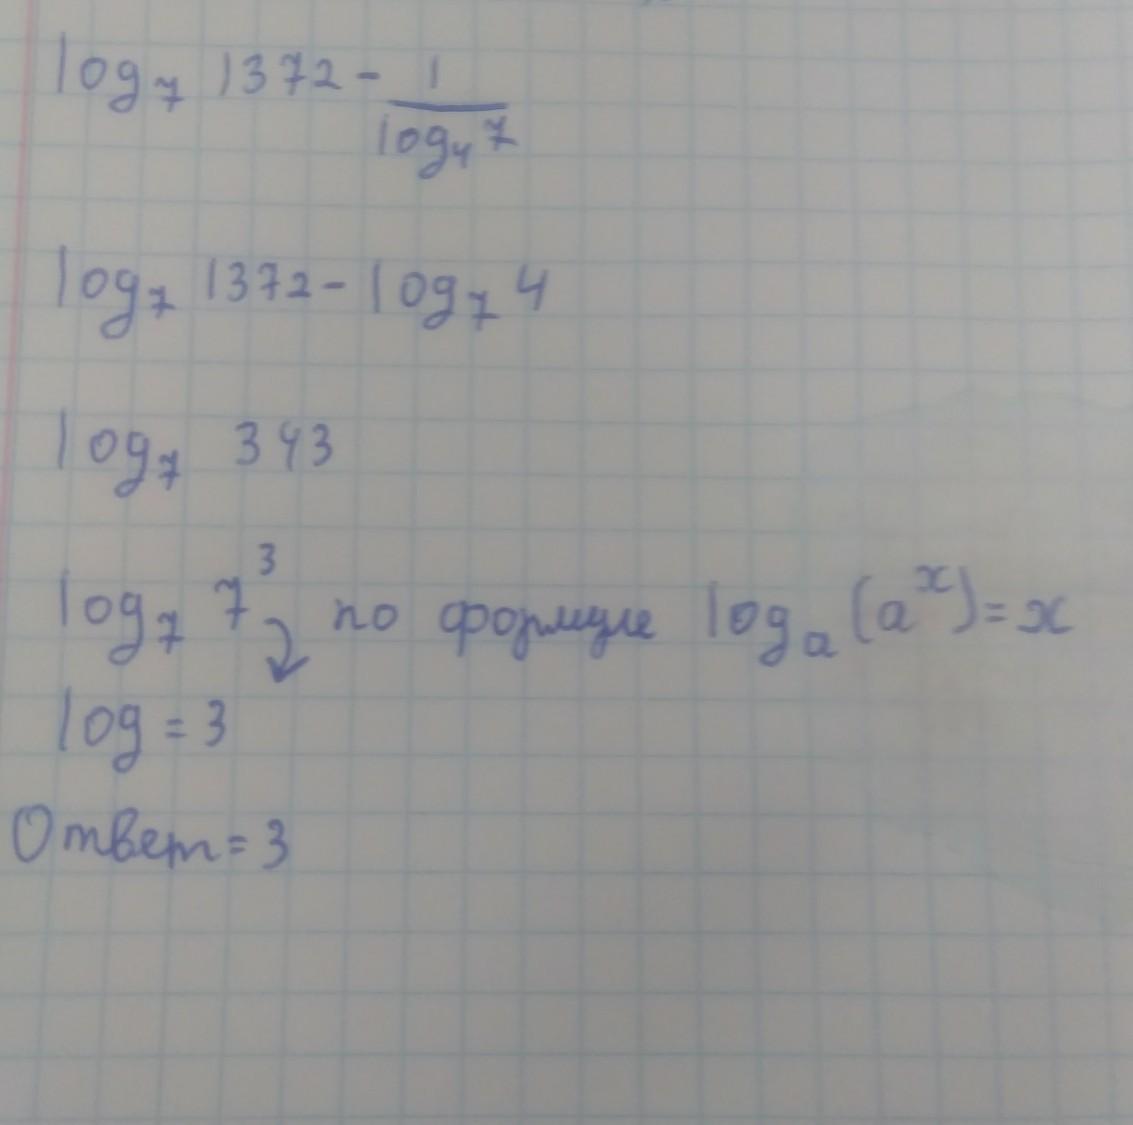 log₇ 1372 - 1/log₄ 7
log₇ 1372 - log₇ 4
log₇ 343
log₇ 7³ по формуле logₐ (aˣ) = x
log = 3
Ответ = 3